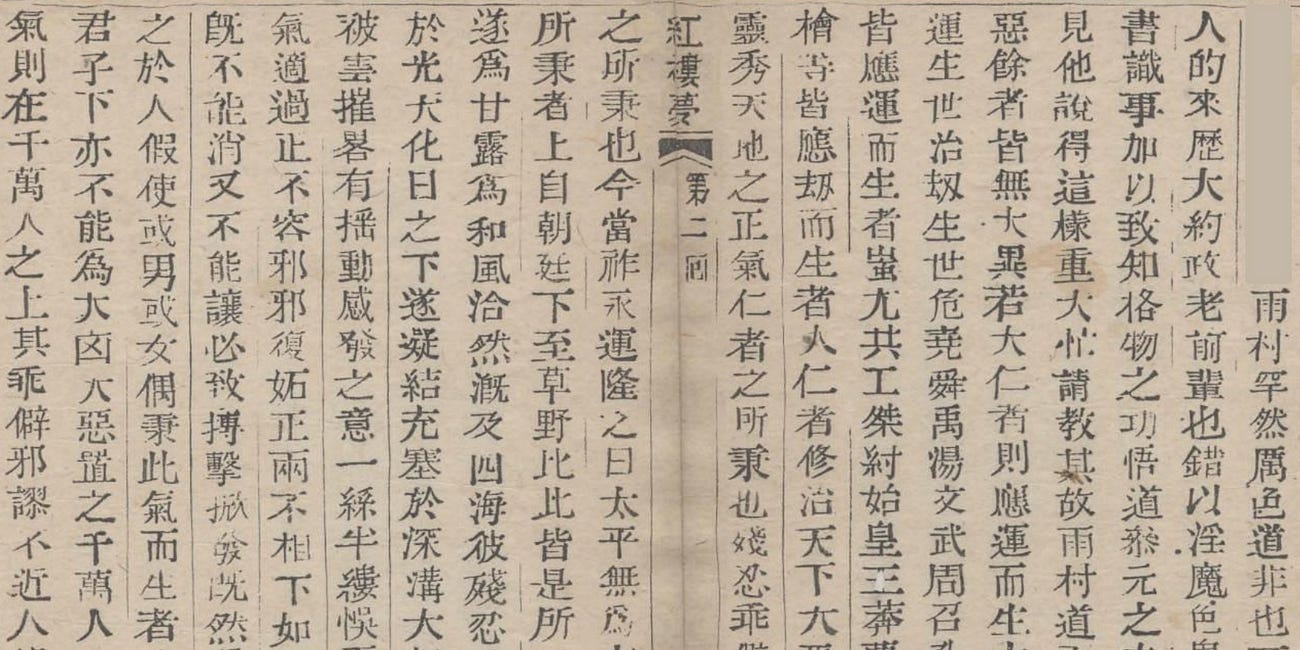 雨村罕然厲色道非也
人的來歷大約政老前輩也錯以淫魔色
書識事加以致知格物之功悟道叅元之
見他說得這樣重大忙請教其故雨村道
惡餘者皆無大異若大仁者則應運而生
運生世治刼生世危堯舜禹湯文武周召
皆應運而生者蚩尤共工桀紂始皇王莽
檜等皆應刼而生者大仁者修治天下大
靈秀天地之正氣仁者之所秉也殘忍乖
紅樓夢 第二囘
之所秉也今當祚永運隆之日太平無爲
所秉者上自朝廷下至草野比比皆是所
遂爲甘露爲和風洽然漑及四海彼殘忍
於光天化日之下遂凝結充塞於深溝大
被雲摧畧有揺動感發之意一絲半縷悞
氣適過正不容邪邪復妬正兩不相下如
旣不能消又不能讓必致搏擊掀發旣然
之於人假使或男或女偶秉此氣而生者
君子下亦不能爲大凶大惡置之千萬人
氣則在千萬人之上其乖僻邪謬不近人